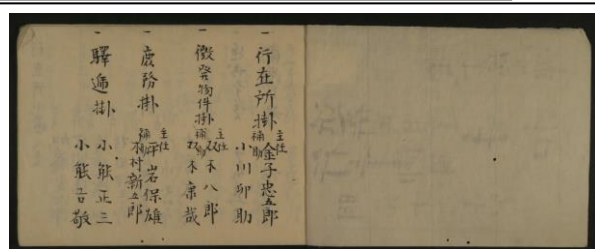 一 行在所掛 主任 金子忠五郎
補助 小川卯助
一 徴発物件掛 主任 双木八郎
補助 双木康哉
一 庶務掛 主任 平岩保雄
補助 木村新五郎
一 驛逓掛 小熊正三
小熊吉敬